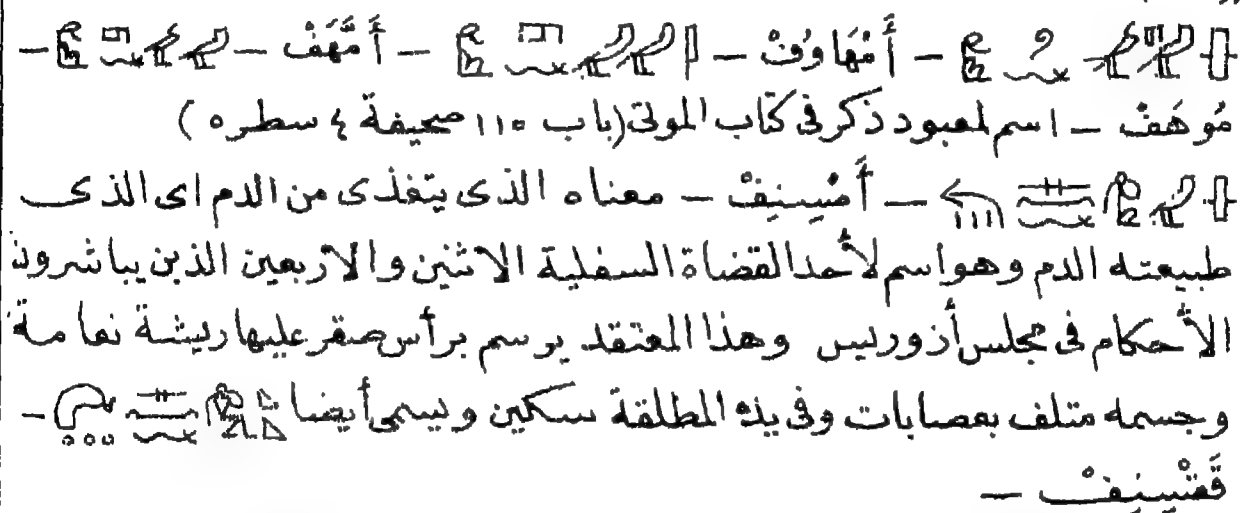 – أَمْهَاوُفْ – – أَمَّهَفْ – –
مُوهَفْ – اسم لمعبود ذكر فى كتاب الموتى (باب ١١٥ صحيفة ٤ سطره)
– أَمْسِنِفْ – معناه الذى يتغذى من الدم اى الذى
طبيعته الدم وهو اسم لأحد القضاة السفلية الاثنين والاربعين الذين يباشرون
الأحكام فى مجلس أزوريس وهذا المعتقد يرسم برأس صقر عليها ريشة نعامة
وجسمه متلف بعصابات وفى يده المطلقة سكين ويسمى أيضا –
قَمْسِنِفْ –